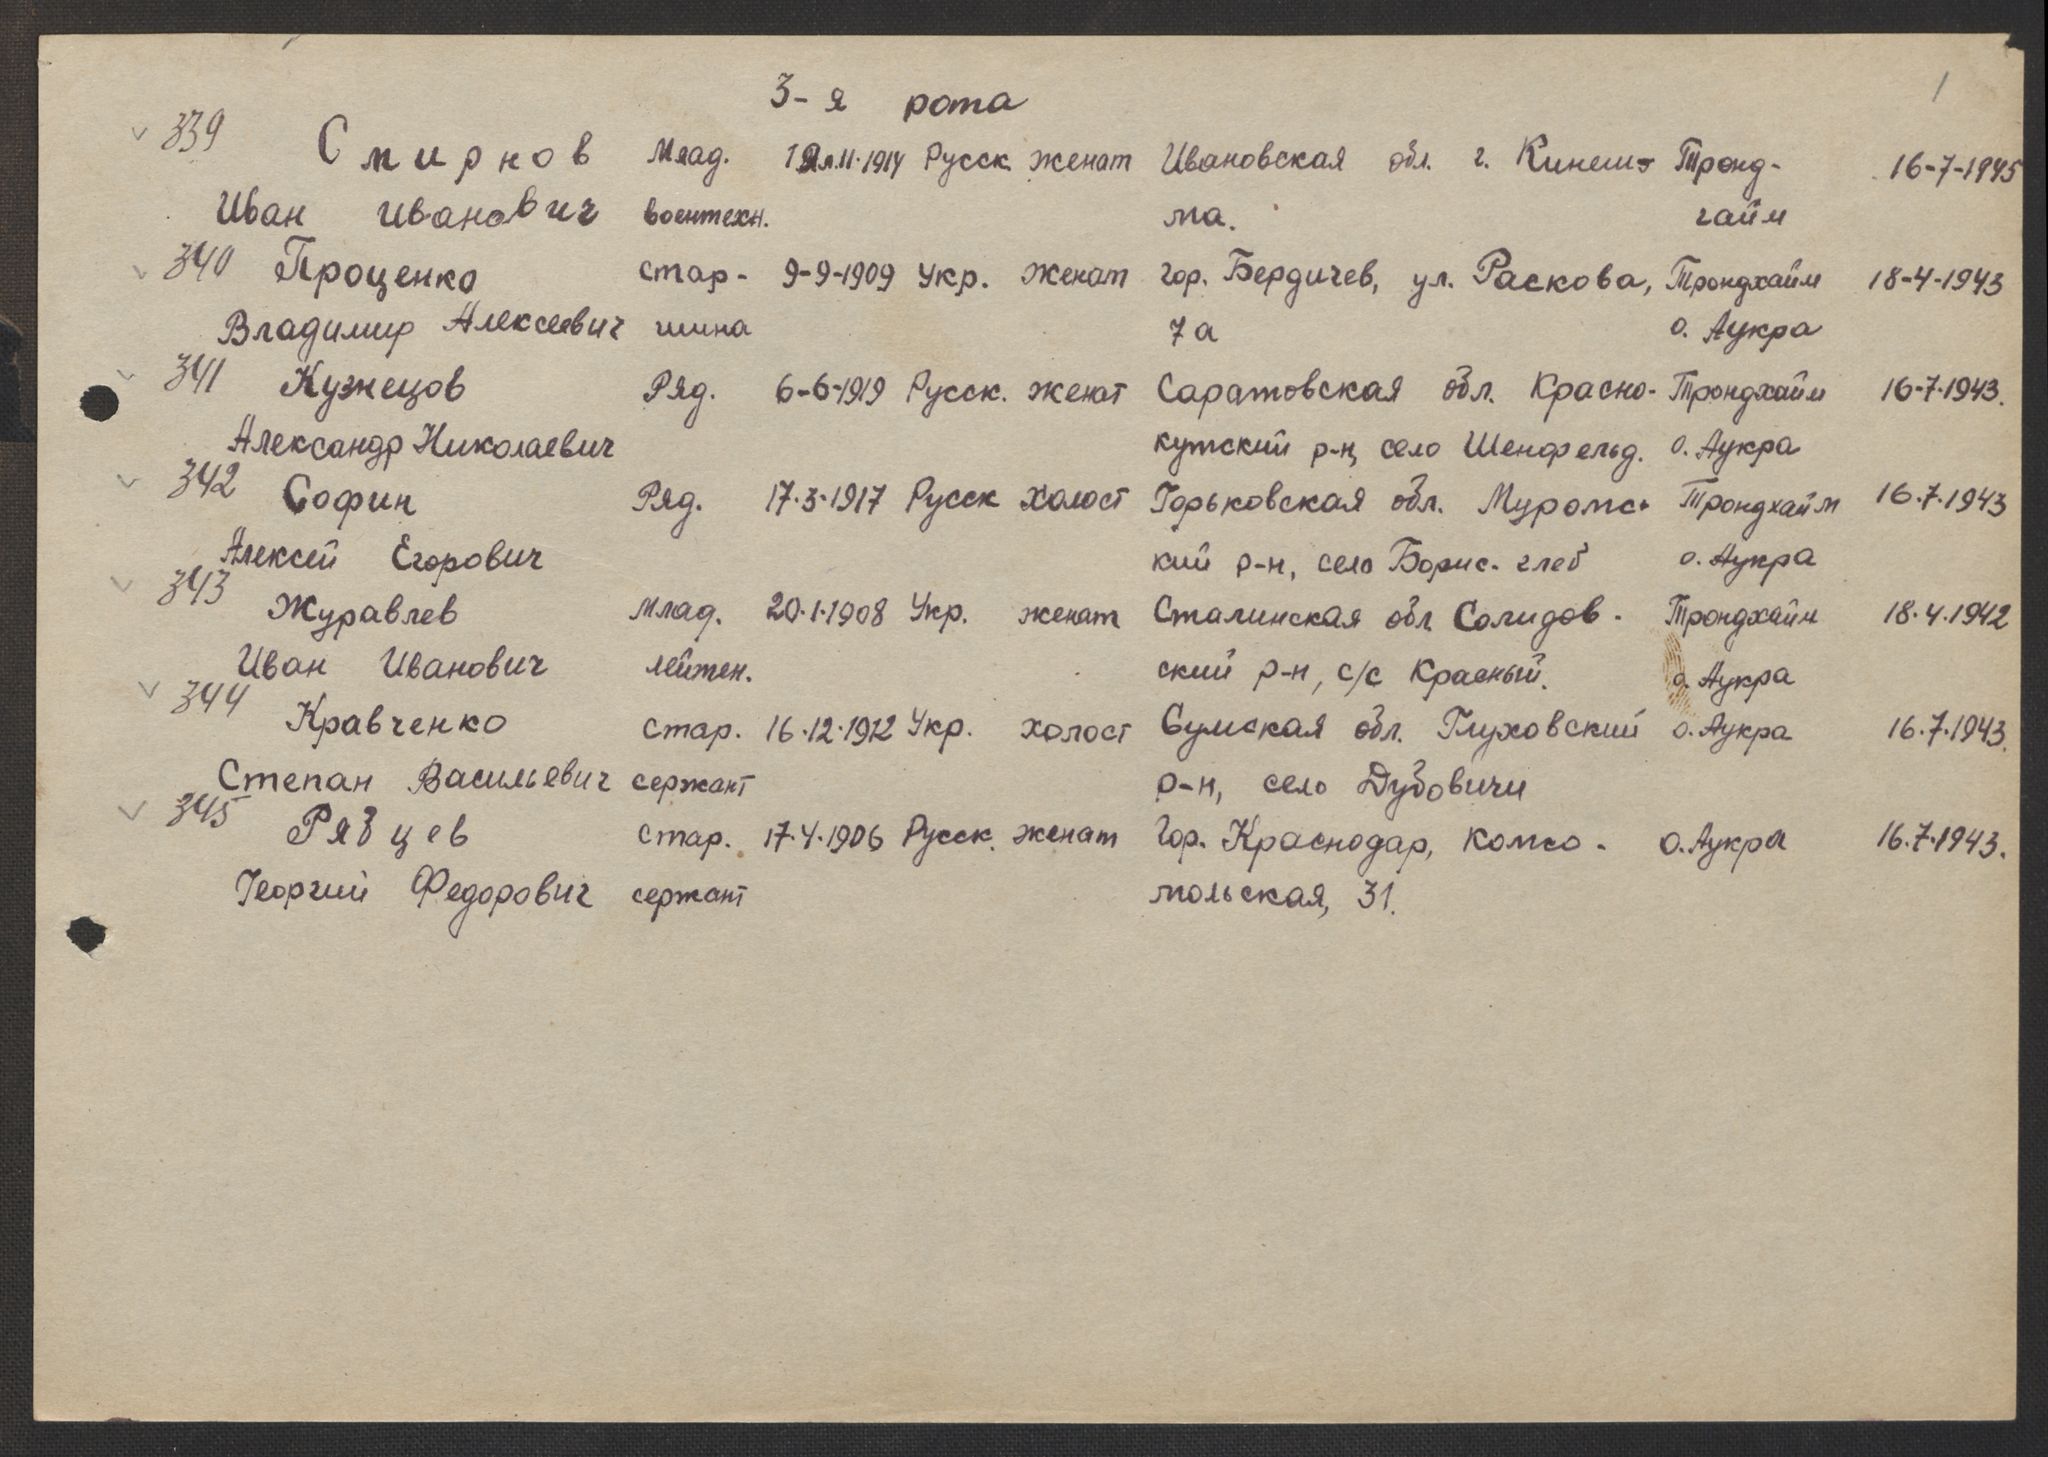 1
3-я рота
339 Смирнов Млад. .11.1914 Русск женат Ивановская обл. г. Кинеш- Тронд- 16-7-1945
Иван Иванович воентехн. ма. гайм
340 Проценко стар- 9-9-1909 Укр. женат гор. Бердичев, ул. Раскова, Трондхайм 18-4-1943
Владимир Алексеевич шина 7а о. Аукра
341 Кузнецов Ряд. 6-6-1919 Русск. женат Саратовская обл. Красно- Трондхайм 16-7-1943.
Александр Николаевич кутский р-н, село Шенфельд. о. Аукра
342 Софин Ряд. 17.3.1917 Русск холост Горьковская обл. Муромс- Трондхайм 16.7.1943
Алексей Егорович кий р-н, село Борис-глеб о. Аукра
343 Журавлев Млад. 20.1.1908 Укр. женат Сталинская обл Солидов- Трондхайм 18.4.1942
Иван Иванович лейтен. ский р-н, с/с Красный. о. Аукра
344 Кравченко Стар. 16.12.1912 Укр. холост Сумская обл. Глуховский о. Аукра 16.7.1943.
Степан Васильевич сержант р-н, село Дубовичи
345 Рябцев Стар. 17.4.1906 Русск. женат Гор. Краснодар, Комсо- о. Аукра 16.7.1943.
Георгий Федорович сержант мольская, 31.